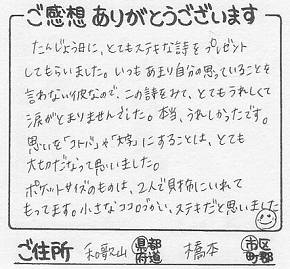 ご感想ありがとうございます
たんじょう日に、とてもステキな詩をプレゼント
してもらいました。いつもあまり自分の思っていることを
言わない彼なので、この詩をみて、とてもうれしくて
涙がとまりませんでした。本当、うれしかったです。
思いを「コトバ」や「文字」にすることは、とても
大切だなって思いました。
ポケットサイズのものは、2人で財布にいれて
もってます。小さなココロづかい、ステキだと思いました
ご住所 和歌山 都道府県 橋本 市区町郡